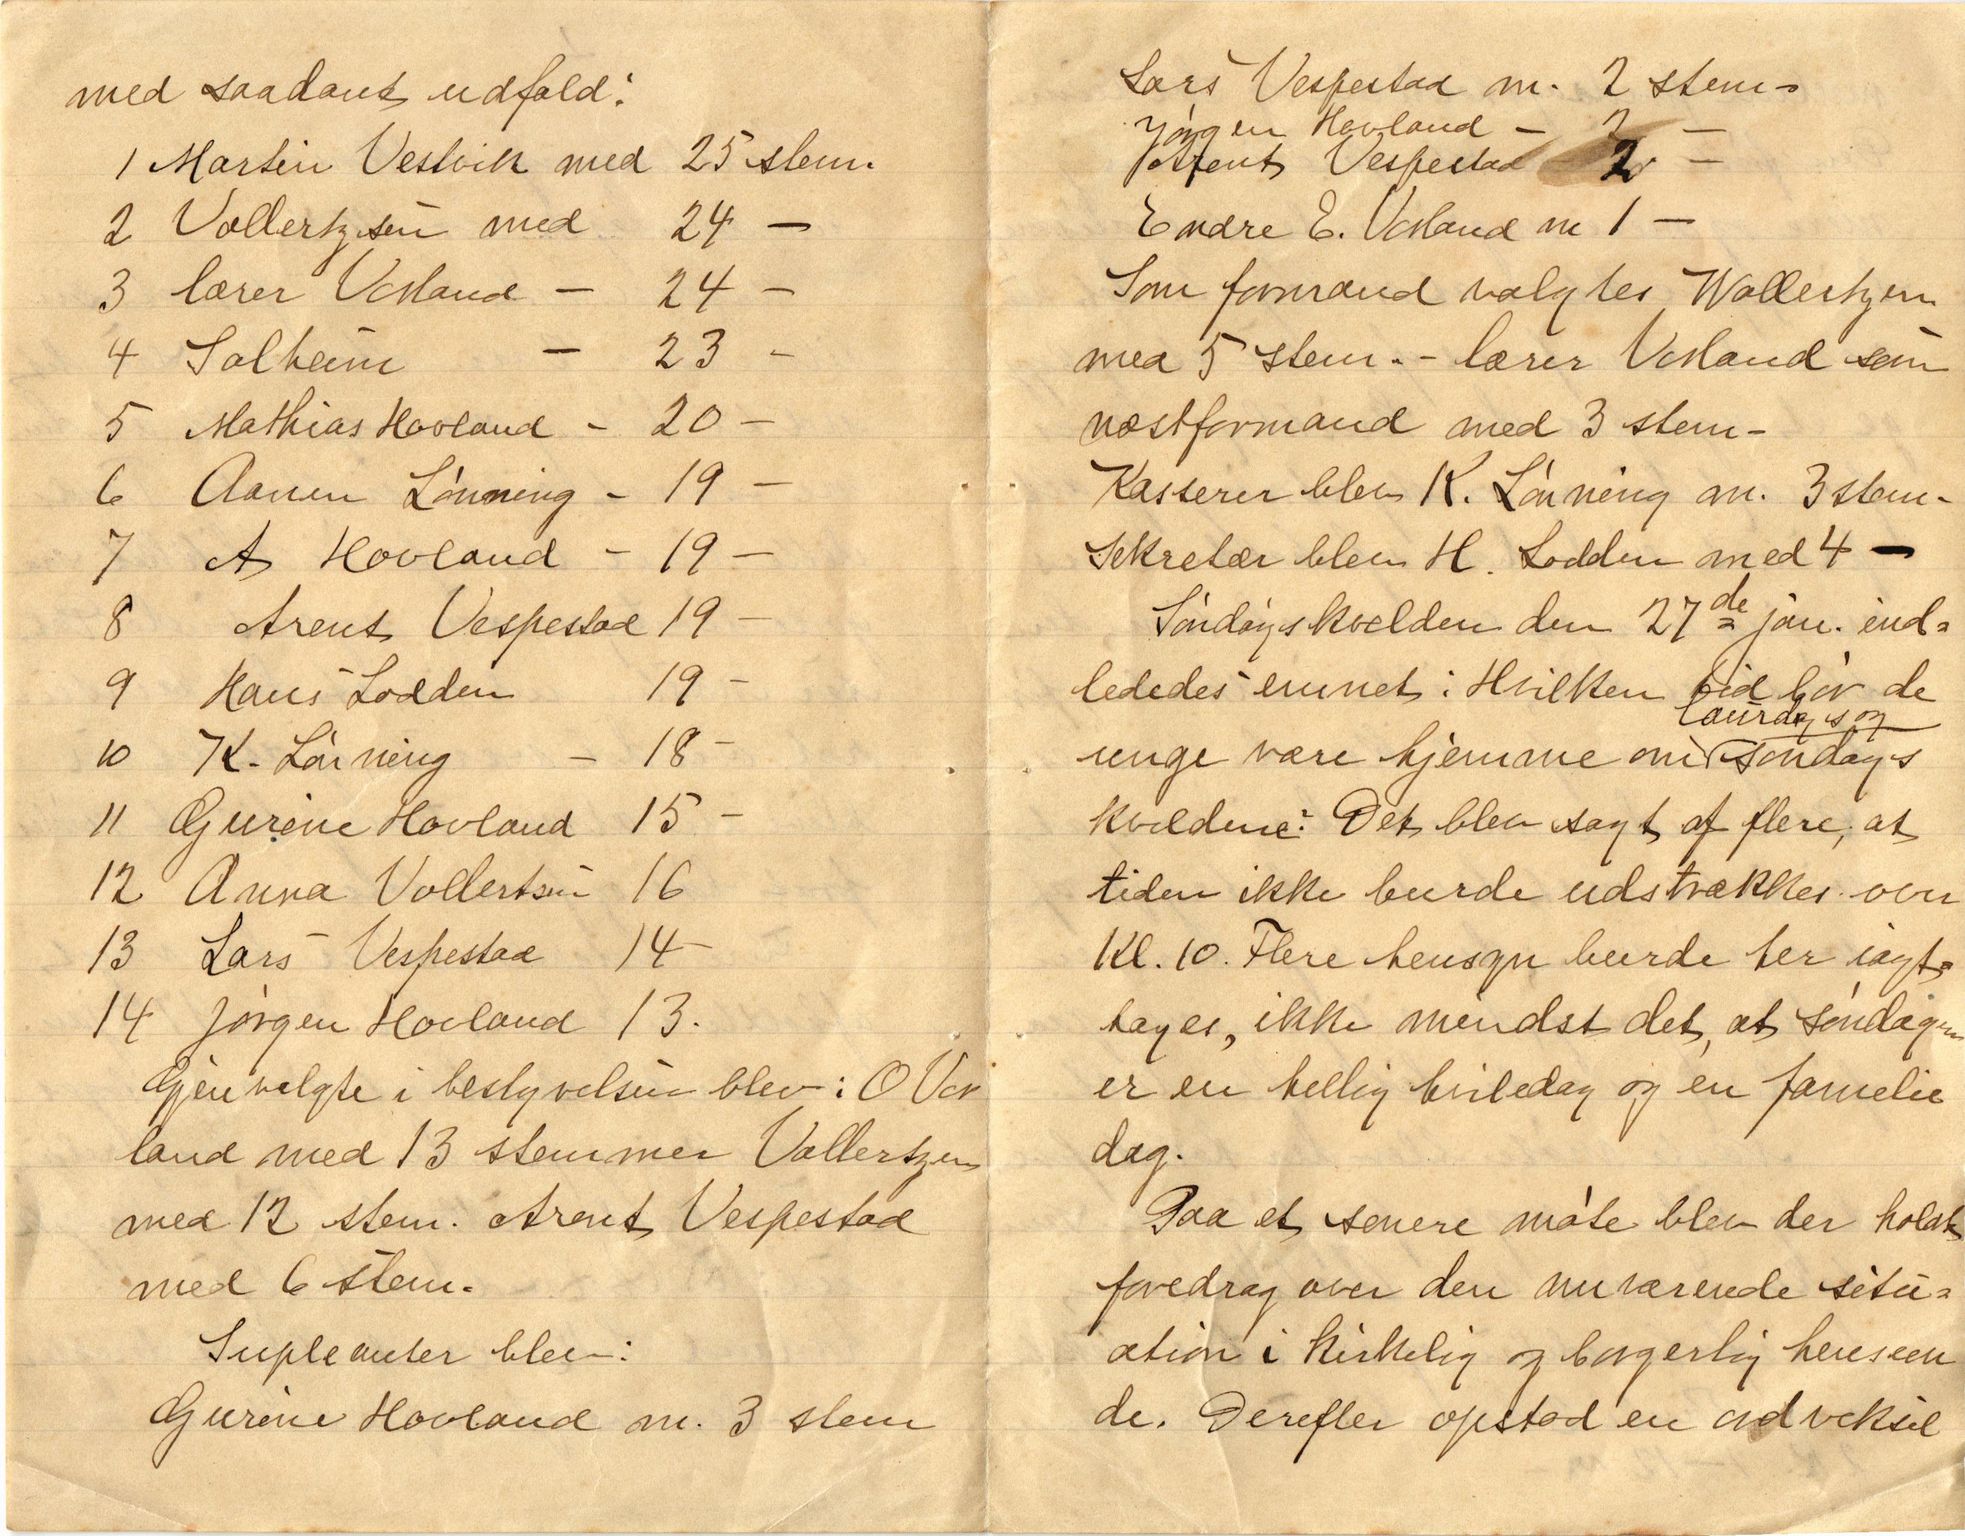 med saadant udfald:
1 Martin Vestvik med 25 stem.
2 Vollertzsen med 24 —
3 lærer Vestland — 24 —
4 Solheim — 23 —
5 Mathias Hovland - 20 —
6 Aanen Lønning - 19 —
7 A Hovland - 19 —
8 Arent Vespestad 19 —
9 Hans Lodden 19 -
10 K. Lønning — 18 -
11 Gurine Hovland 15 -
12 Anna Vollertsen 16
13 Lars Vespestad 14 -
14 Jørgen Hovland 13.
Gjenvalgte i bestyrelsen blev: O
land med 13 stemmer Vollertzen
med 12 stem. Arent Vespestad
med 6 stem.
Supleanter blev:
Gurine Hovland m. 3 stem
Lars Vespestad m. 2 stem-
Jørgen Hovland - 2 —
Arent Vespestad 2 —
Endre E. m 1 —
Som formand valgtes Wollertzen
med 5 stem. - lærer som
næstformand med 3 stem-
Kasserer blev K. Lønning m. 3 stem-
Sekretær blev H. Lodden med 4 —
Søndagskvelden den 27de jan. ind-
lededes emnet: Hvilken tid bør de
unge være hjemme om laurdags og søndags
kveldene: Det blev sagt af flere, at
tiden ikke burde udstrækkes over
Kl. 10. Flere hensyn burde her iagt-
tages, ikke mindst det, at søndagen
er en hellig hviledag og en familie
dag.
Paa et senere møte blev der holdt
foredrag over den nuværende situ-
ation i kirkelig og borgerlig henseen
de. Derefter opstod en ordveksel